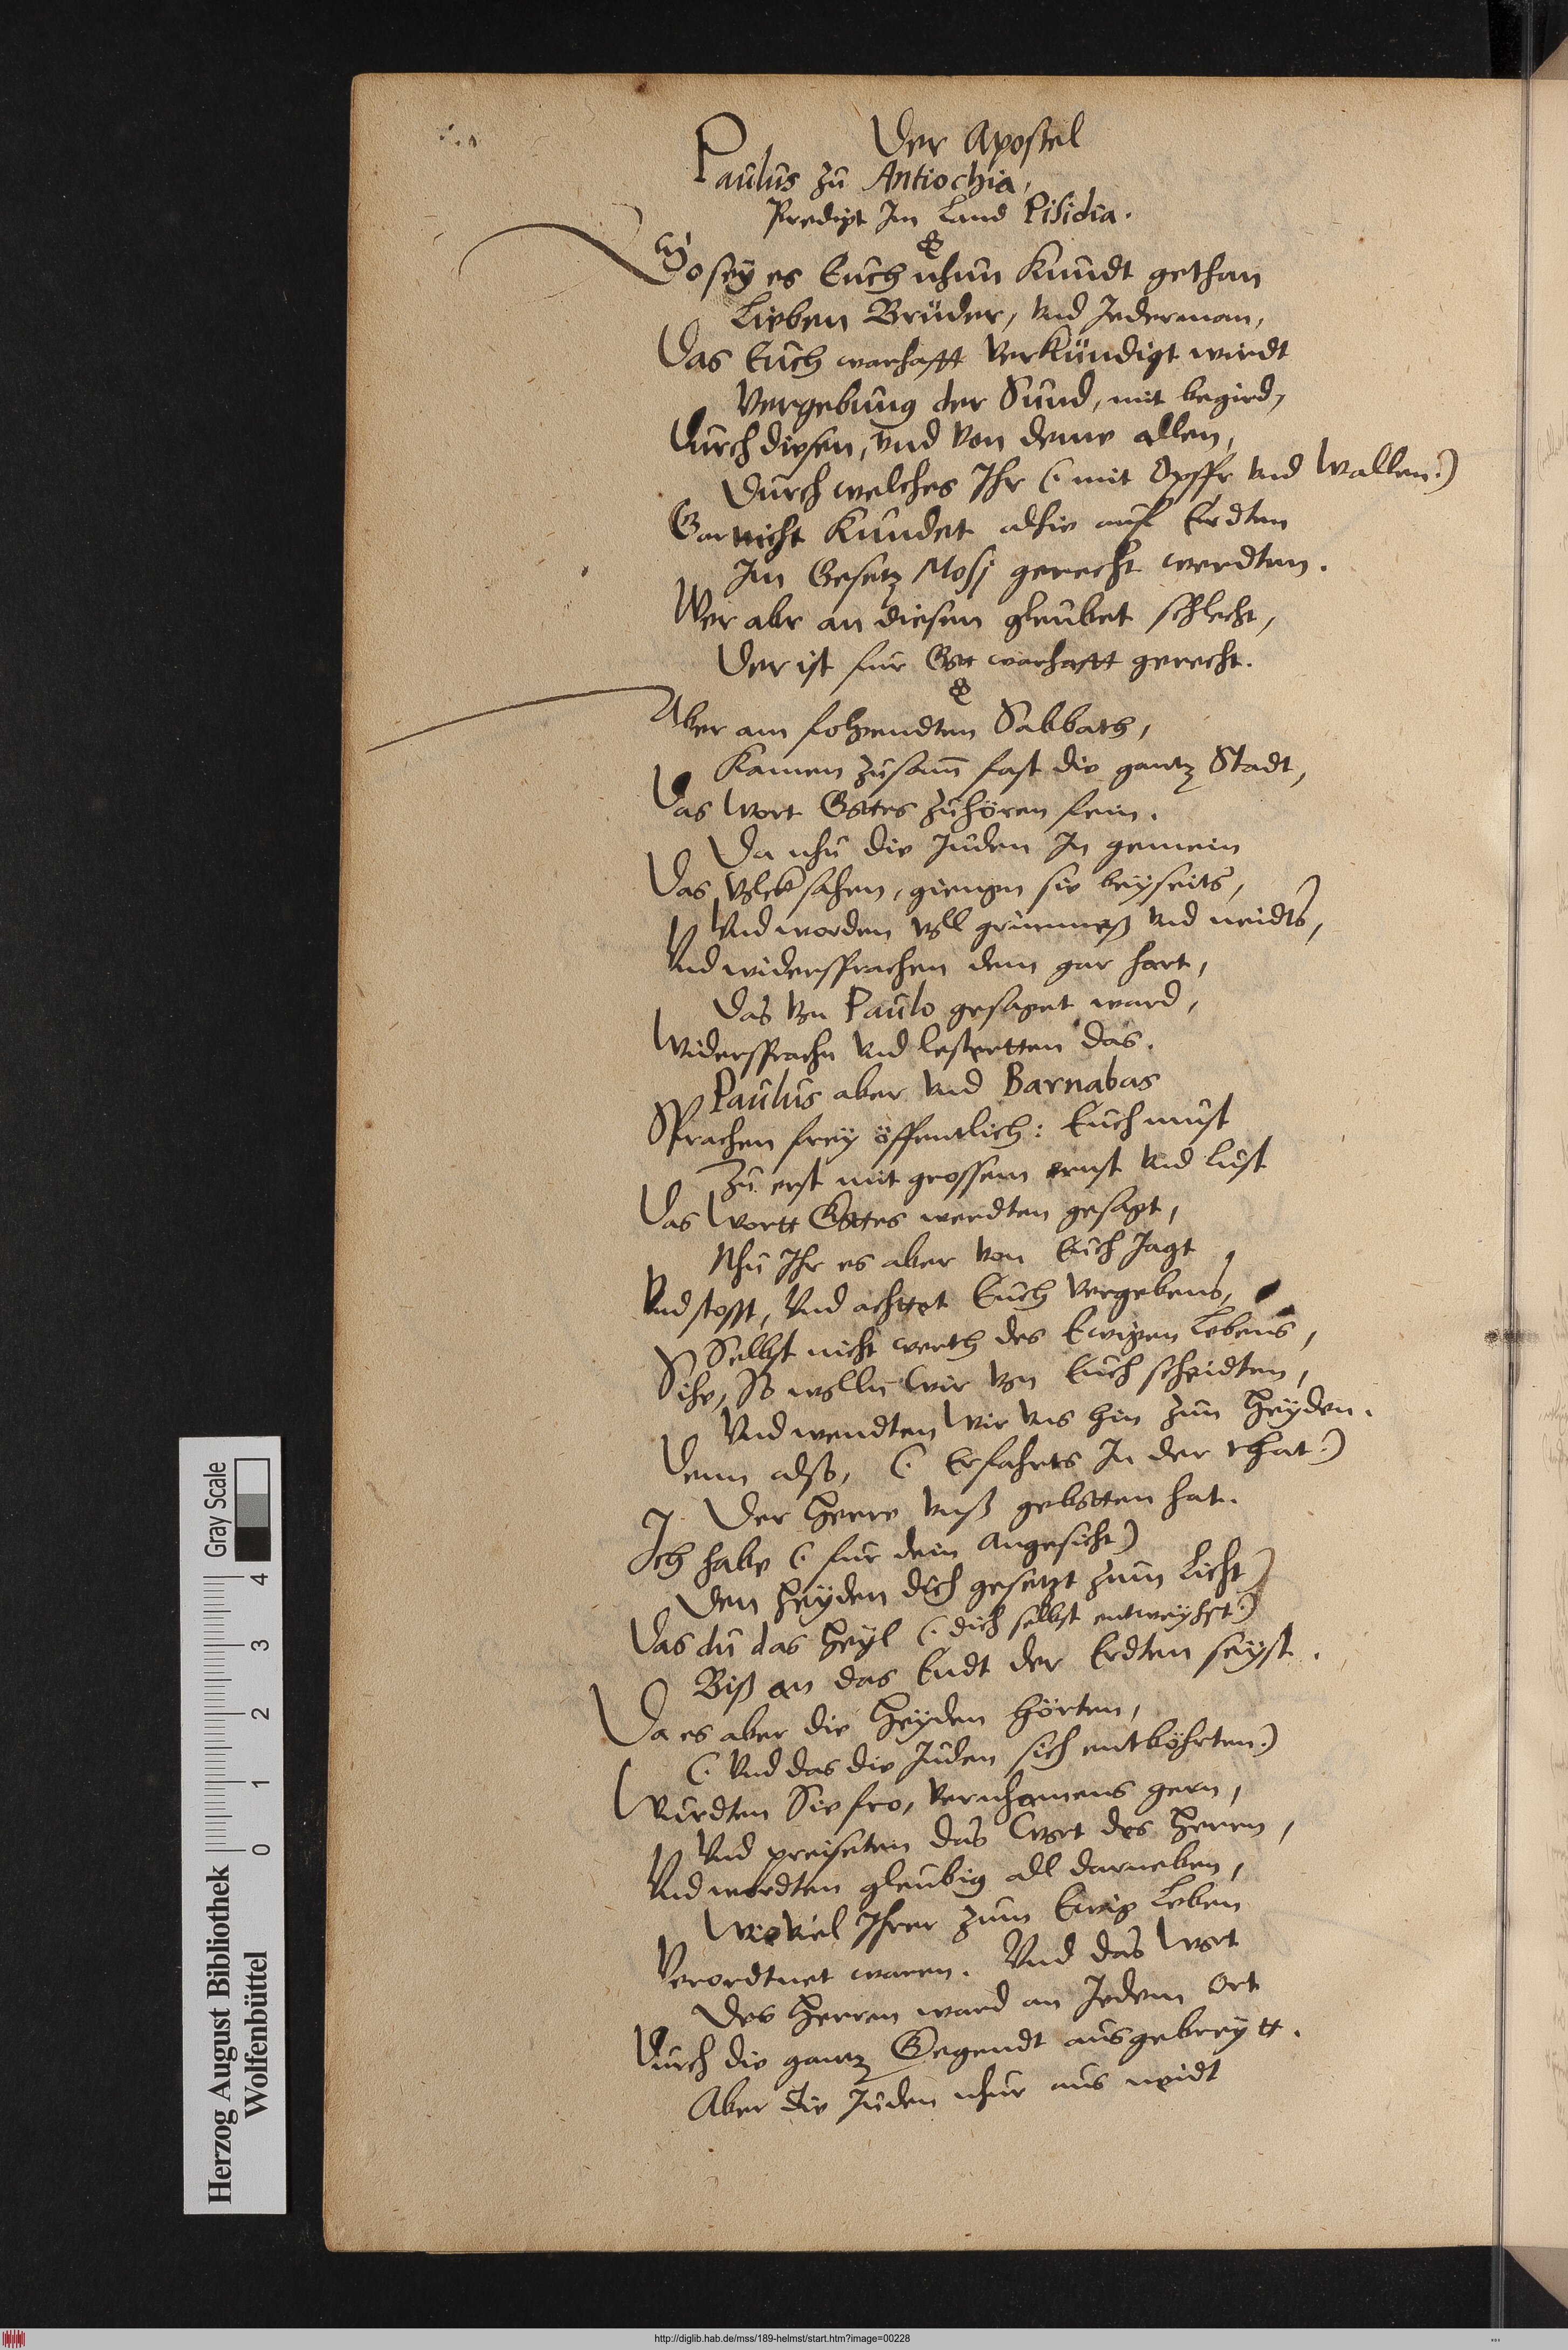 Der Apostel
Paulus zu Antiochia,
Predigt Im Land Pisidia.
So sey es Euch nhun Kundt gethan
Lieben Brüder, vnd Jederman,
Das Euch warhafft verKündigt wirdt
Vergebung der Sünd, mit begird,
Durch diesen, vnd von deme allen,
Durch welches Ihr (: mit Opffr vnd Wallen:)
Gar nicht Kundet alhie auf Erdten
Im Gesetz Mosj gerecht werdten.
Wer abr an diesen gleubet schlecht,
Der ist fur Gott warhafft gerecht.
Aber am folgendten Sabbath,
Kamen zusam̄ fast die gantz Stadt,
Das Wort Gottes zuhören fein.
Da nhu die Juden In gemein
Das Volck sahen, giengen sie beyseits,
Vnd worden voll grimmeß vnd neidts,
Vnd widersprachen dem gar hart,
Das von Paulo gesaget ward,
Widersprachn vnd lestertten das.
Paulus aber vnd Barnabas
Sprachen frey öffentlich: Euch must
Zu erst mit grossem ernst vnd lust
Das Wortt Gottes werdten gesagt,
Nhu Ihr es aber von Euch Jagt
Vnd stosst, Vnd achttet Euch vergebens,
Selbst nicht werth des Ewigen Lebens,
Sihe, So wolln Wir von Euch scheidten,
Vnd wendten Wir vns hin zun Heyden.
Denn also, (: Erfahrts In der that:)
Der Herre vnß gebotten hat.
Ich habe (: fur dein Angesicht)
Den Heyden dich gesetzt zum Licht
Das du das Heyl (: dich selbst entweyhst:)
Biß an das Endt der Erdten seyst.
Da es aber die Heyden hörten,
(: Vnd das die Juden sich entböhrten:)
Wurdten Sie fro, vernhamens gern,
Vnd preiseten das Wort des Herrn,
Vnd wordten gleubig all darneben,
Wie viel Ihrer zum Ewig Leben
Verordtnet waren. Vnd das Wort
Des Herren ward an Jedem Ort
Durch die gantz Gegendt ausgebreytt.
Aber die Juden nhur aus neidt
Herzog August Bibliothek
Wolfenbüttel
Gray Scale
0 1 2 3 4
http://diglib.hab.de/mss/189-helmst/start.htm?image=00228